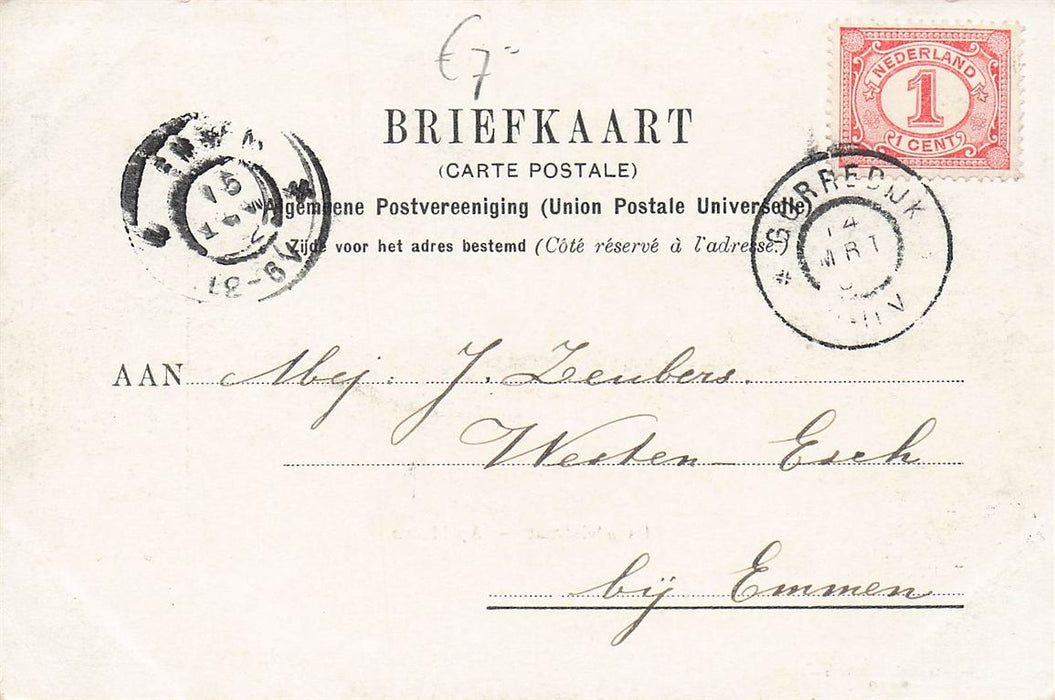 €7-
NEDERLAND
1
1 CENT
BRIEFKAART
(CARTE POSTALE)
Algemeene Postvereeniging (Union Postale Universelle)
Zijde voor het adres bestemd (Côté réservé à l'adresse.)
GORREDIJK
14
MRT
AAN Mej. J. Zeubers.
Westen-Esch
bij Emmen